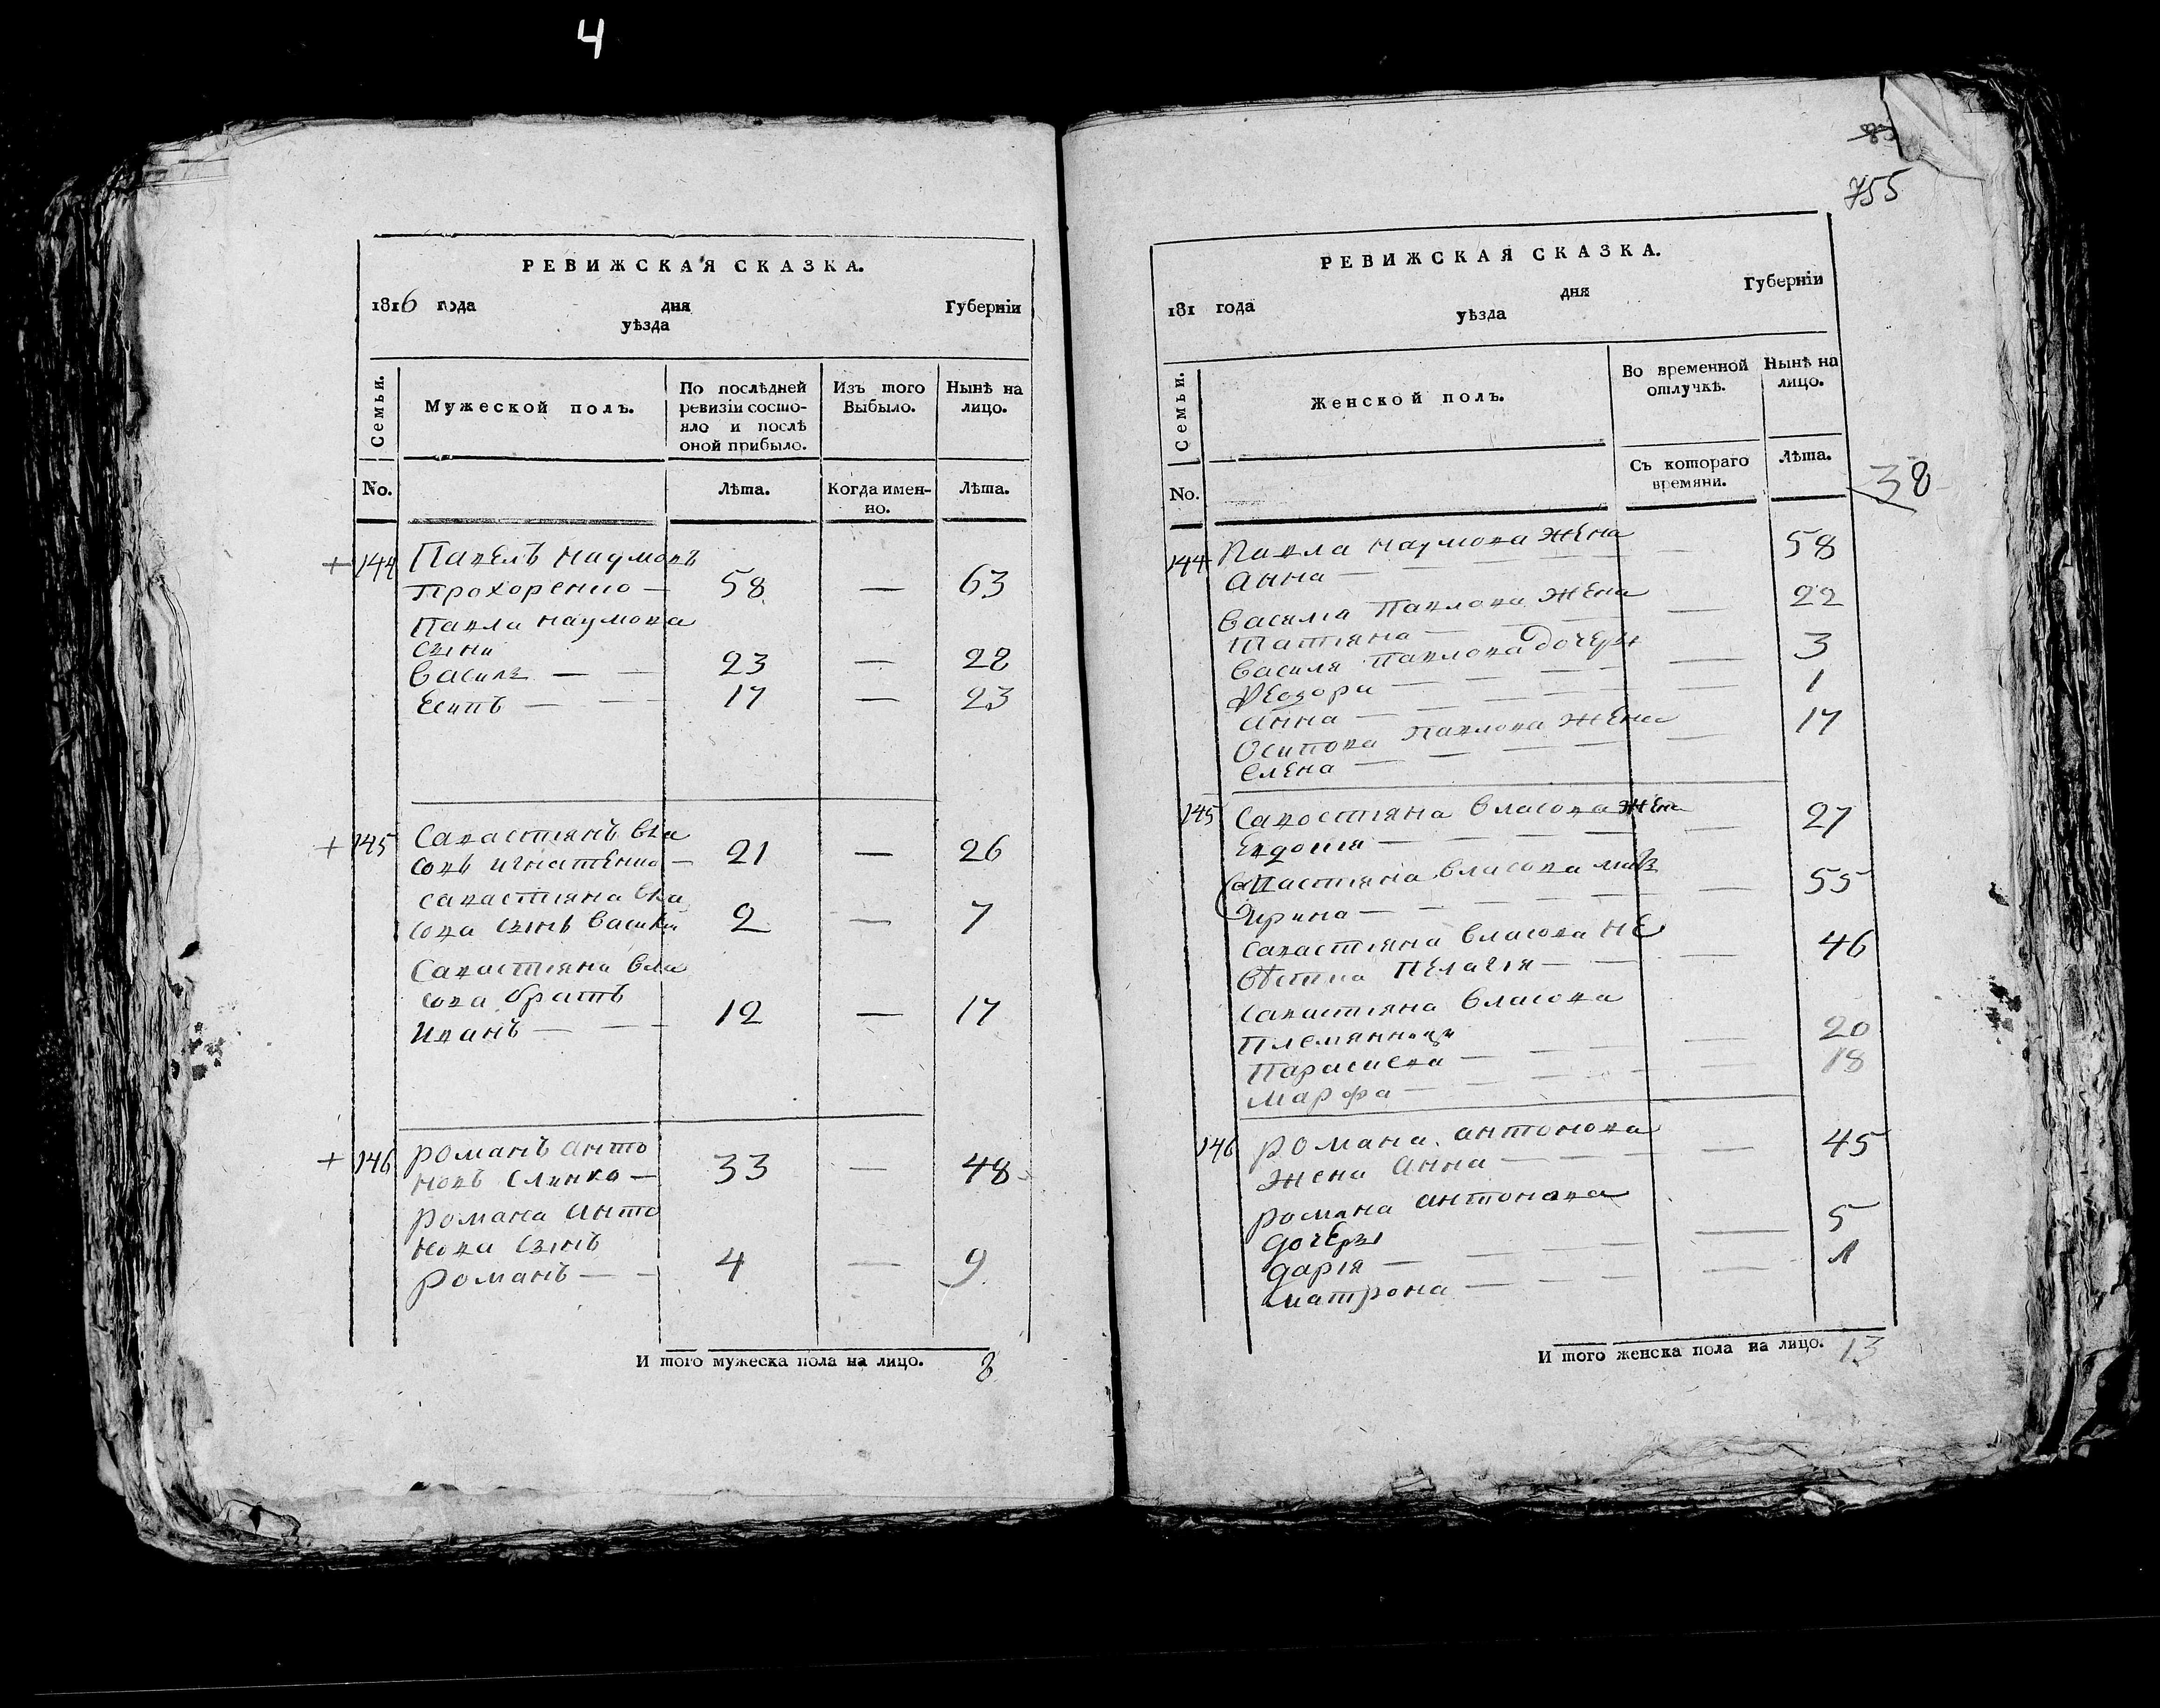 4
РЕВИЖСКАЯ СКАЗКА.
1816 года дня Губерніи
уѣзда
Семьи.
Мужеской полъ.
По послѣдней ревизіи состояло и послѣ оной прибыло.
Изъ того Выбыло.
Нынѣ на лицо.
No.
Лѣта.
Когда именно.
Лѣта.
+ 144 Павелъ Наумовъ
Прохоренко — 58 — 63
Павла Наумова
сыни
Василь — — 23 — 28
Есипъ — — 17 — 23
+ 145 Савастиянъ Вла
совъ Игнатенко — 21 — 26
Савастияна Вла
сова сынъ Василий 2 — 7
Савастияна Вла
сова братъ
Иванъ — — 12 — 17
+ 146 Романъ Анто
новъ Слинко — 33 — 48
Романа Анто
нова сынъ
Романъ — — 4 — 9
И того мужеска пола на лицо. 8
755
РЕВИЖСКАЯ СКАЗКА.
181 года дня Губерніи
уѣзда
Семьи.
Женской полъ.
Во временной отлучкѣ.
Нынѣ на лицо.
No.
Съ котораго времяни.
Лѣта.
38
144 Павла Наумова жена
Анна — 58
Василия Павлова жена
Татияна — 22
Василя Павлова дочеры
Феодора — 3
Анна — 1
Осипова Павлова жена
Елена — 17
145 Савостияна Власова жена
Евдокия — 27
Савастияна Власова мать
Ирина — 55
Савастияна Власова не
вѣстка Пелагія — 46
Савастияна Власова
Племянницы
Параскева — 20
Марфа — 18
146 Романа Антонова
жена Анна — 45
Романа Антонова
дочеры
Дарія — 5
Матрона — 1
И того женска пола на лицо. 13